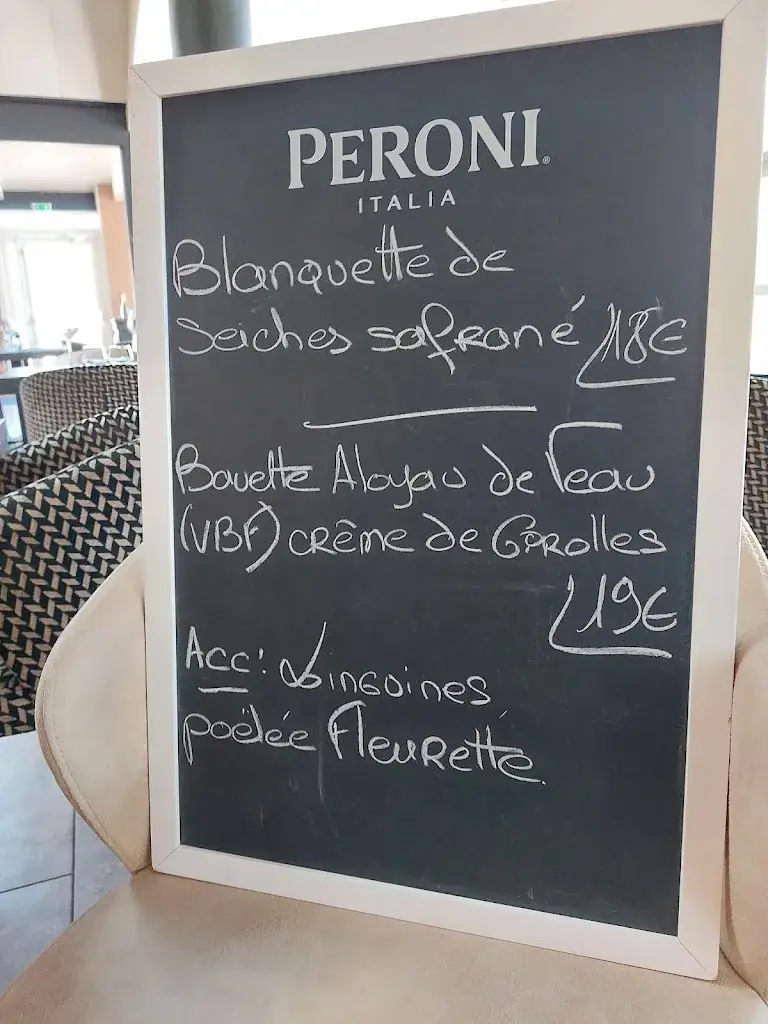 PERONI
ITALIA
Blanquette de
Seiches safrané 18€
Bavette Aloyau de Veau
(VBF) crême de Girolles
19€
Acc: Linguines
poëlée Fleurette.